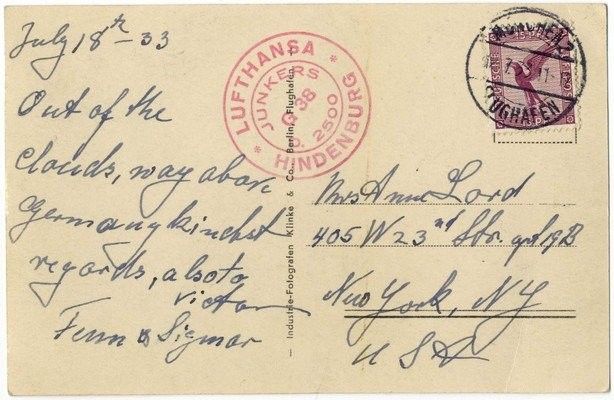 July 18th - 33
Out of the
clouds, way above
Germany kindest
regards, also to
Victor
Fenn & Sigmar
LUFTHANSA
* HINDENBURG *
JUNKERS
G 38
D. 2500
MÜNCHEN 2
FLUGHAFEN
Industrie-Fotografen Klinke & Co., Berlin, Flughafen
Mrs Anne Lord
405 W 23nd Str. apt 19B
New York, NY
USA